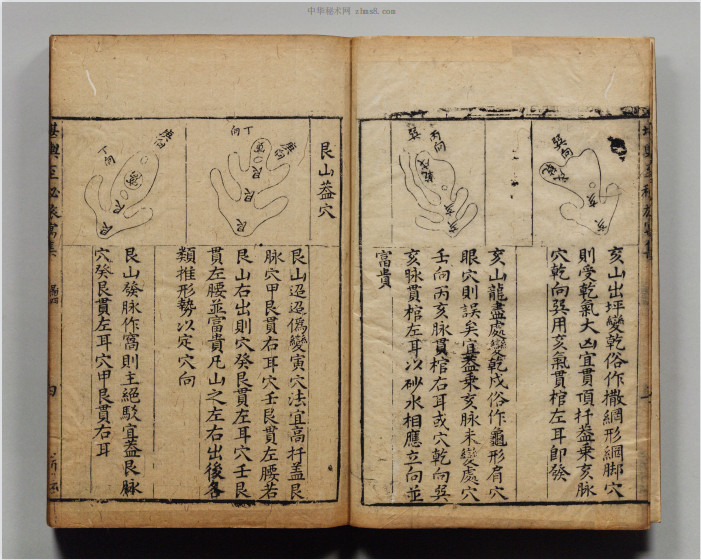 中华秘术网 zhms8.com
巽向
亥
亥山出坪變乾俗作撒網形網脚穴
則受乾氣大凶宜貫頂扦葢乘亥脉
穴乾向巽用亥氣貫棺左耳即發
丙向
巽
乾戌
亥
亥
亥山龍盡處變乾戌俗作龜形肩穴
眼穴則誤矣宜葢乘亥脉未變處穴
壬向丙亥脉貫棺右耳或穴乾向巽
亥脉貫棺左耳以砂水相應立向並
富貴
艮山葢穴
丁向
艮
艮
艮
艮山迢迢偽變寅穴法宜高扦葢艮
脉穴甲艮貫右耳穴壬艮貫左腰若
艮山右出則穴癸艮貫左耳穴壬艮
貫左腰並富貴凡山之左右出後各
類推形勢以定穴向
丁向
艮
艮
艮
艮山發脉作窩則主絕駁宜葢艮脉
穴癸艮貫左耳穴甲艮貫右耳
四